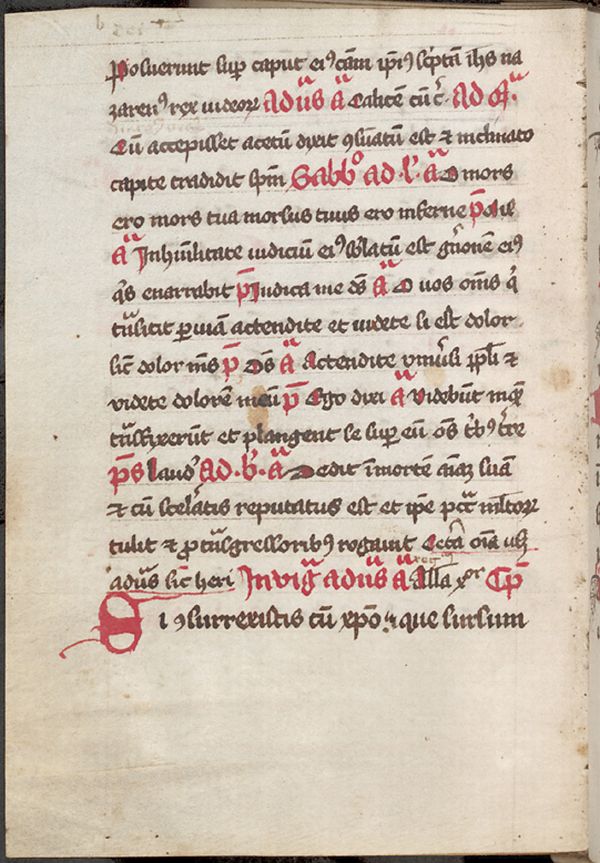 Posuerunt sup caput eiꝰ cām ip̄iꝰ sc̄ptā ih̄s na
zarenꝰ rex iudeoꝝ Ad ūs a Calicē
Cū accepisset acetū dixit ꝯsūatū est ⁊ inclinato
capite tradidit sp̄m Sabbo ad l. a O mors
ero mors tua morsus tuus ero inferne p̄
a In humilitate iudiciū eiꝰ sblatū est gn̄onem eiꝰ
q̇s enarrabit p̄ Iudica me ds̄ a O uos om̄s q̇
tn̄sitis ꝑ uiam actendite et uidete si est dolor
sic̄ dolor m̄s p̄ Ds̄ a Actendite uniu̓si ppl̄i ⁊
videte dolorē meū p̄ Ego dixi a Videbūt in quē
tn̄sfixerūt et plangent se sup eū om̄s
p̄s laud Ad. b. a Dedit ī mortē aīaz suā
⁊ cū scelatis reputatus est et ip̄e pcc̄ā mltoꝝ
tulit ⁊ ꝓ tn̄sgressoribꝰ rogauit Cet̄a oīa
ad ūs sic̄ heri In vig ad ūs a Alla Cp̄
Si ꝯsurrexistis cū xp̄o que sursum